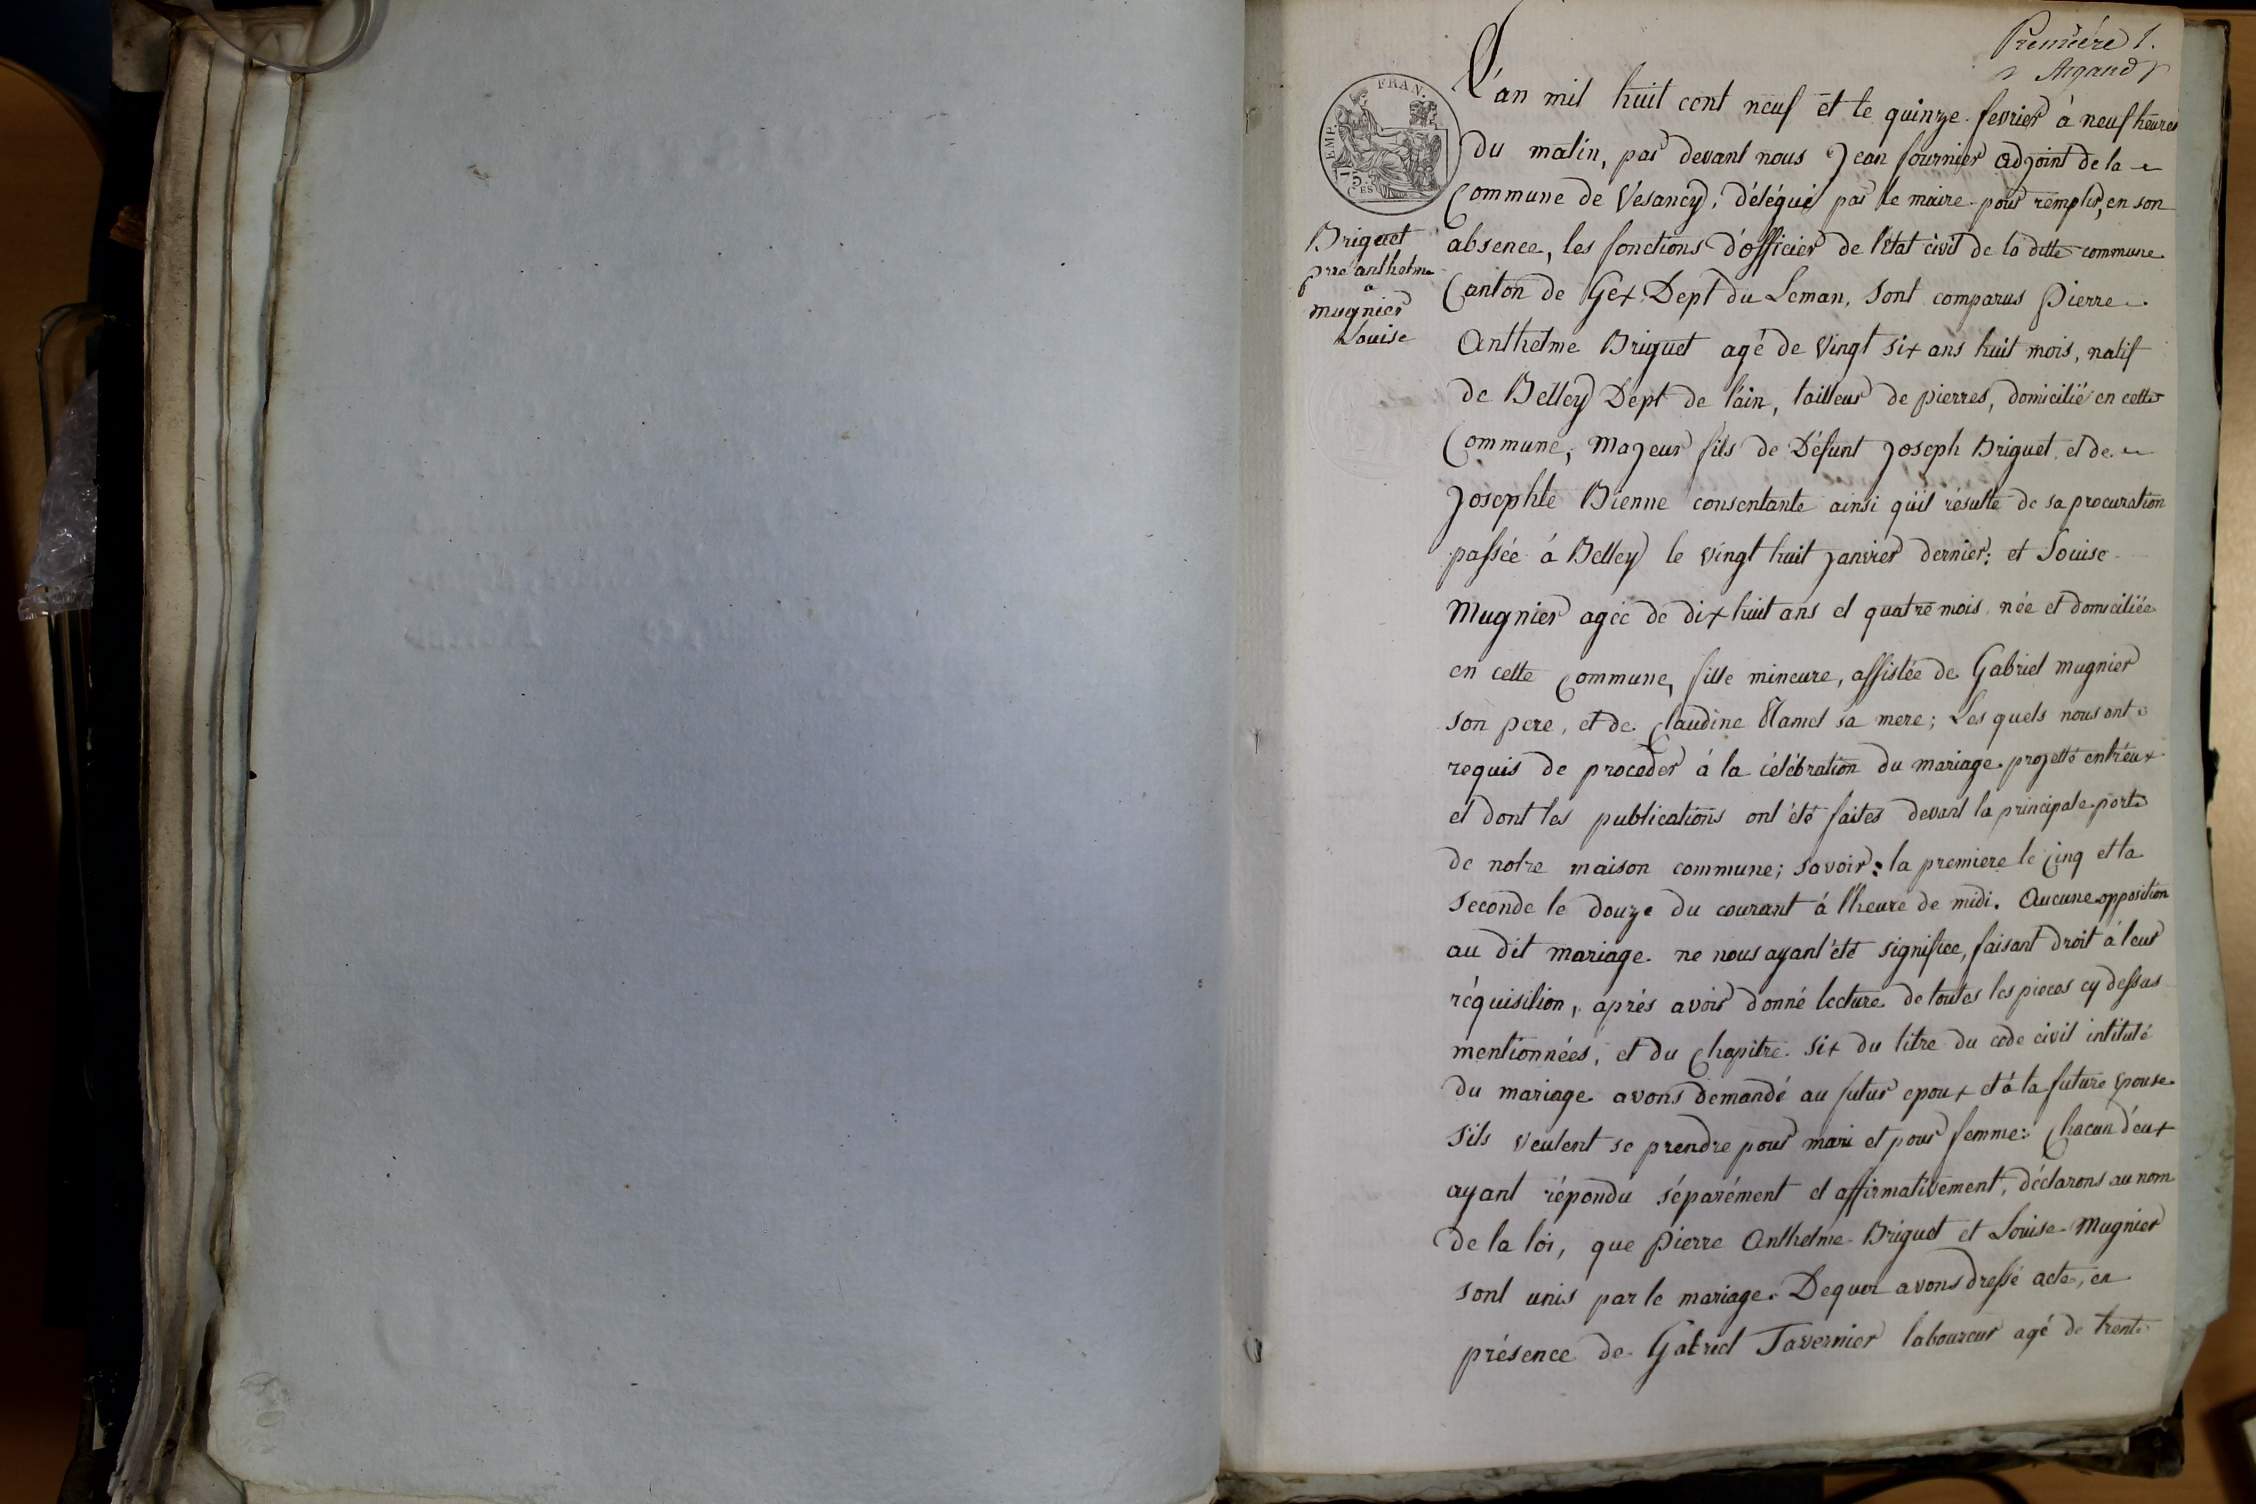 Première 1.
Argand
EMP. FRAN.
75.
CES
L'an mil huit cent neuf et le quinze fevrier à neuf heures
du matin, par devant nous Jean fournier adjoint de la
Commune de Vésancy, délégué par le maire pour remplir, en son
absence, les fonctions d'officier de l'état civil de la ditte commune
Canton de Gex Dept du Leman, sont comparus Pierre
Anthelme Briguet agé de vingt six ans huit mois, natif
de Belley Dept de l'ain, tailleur de pierres, domicilié en cette
Commune, majeur fils de Défunt Joseph Briguet et de
Josephte Bienne consentante ainsi qu'il résulte de sa procuration
passée à Belley le vingt huit janvier dernier; et Louise
Mugnier agée de dix huit ans et quatre mois née et domiciliée
en cette Commune, fille mineure, assistée de Gabriel mugnier
son pere, et de Claudine Hamel sa mere; Les quels nous ont
requis de proceder à la célébration du mariage projetté entr'eux
et dont les publications ont été faites devant la principale porte
de notre maison commune; savoir: la premiere le cinq et la
seconde le douze du courant à l'heure de midi. Aucune opposition
au dit mariage ne nous ayant été signifiee, faisant droit à leur
réquisition, aprés avoir donné lecture de toutes les pieces cy dessus
mentionnées, et du Chapitre six du titre du code civil intitulé
du mariage avons demandé au futur epoux et à la future epouse
s'ils veulent se prendre pour mari et pour femme: Chacun d'eux
ayant répondu séparément et affirmativement, déclarons au nom
de la loi, que Pierre Anthelme Briguet et Louise Mugnier
sont unis par le mariage. Dequoi avons dressé acte, en
présence de Gabriel Tavernier laboureur agé de trente
Briguet
prre anthelme
a
mugnier
Louise